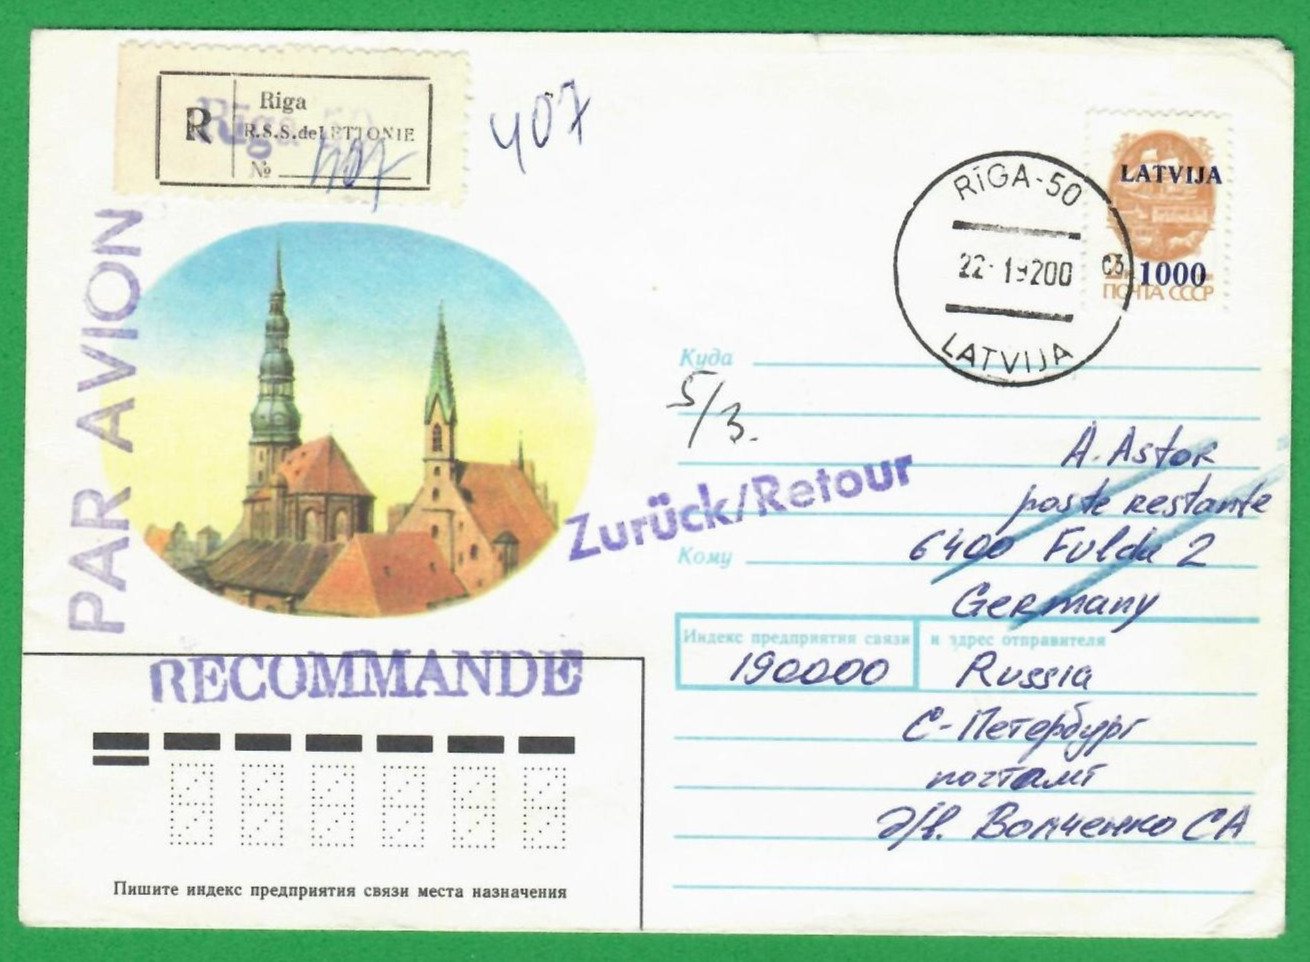 R
Riga
R.S.S.de LETTONIE
Rīga 50
№ 407
407
PAR AVION
RĪGA-50
22·19200
LATVIJA
LATVIJA
1000
ПОЧТА СССР
Куда
5/3.
A. Astor
poste restante
Zurück/Retour
6400 Fulda 2
Кому
Germany
Индекс предприятия связи и адрес отправителя
190000 Russia
С-Петербург
почтамт
Д/в. Волченко СА
RECOMMANDE
Пишите индекс предприятия связи места назначения